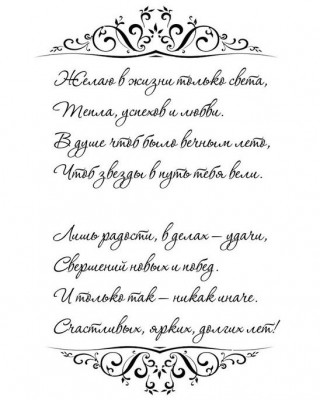 Желаю в жизни только света,
Тепла, успехов и любви.
В душе чтоб было вечным лето,
Чтоб звезды в путь тебя вели.
Лишь радости, в делах – удачи,
Свершений новых и побед.
И только так – никак иначе.
Счастливых, ярких, долгих лет!